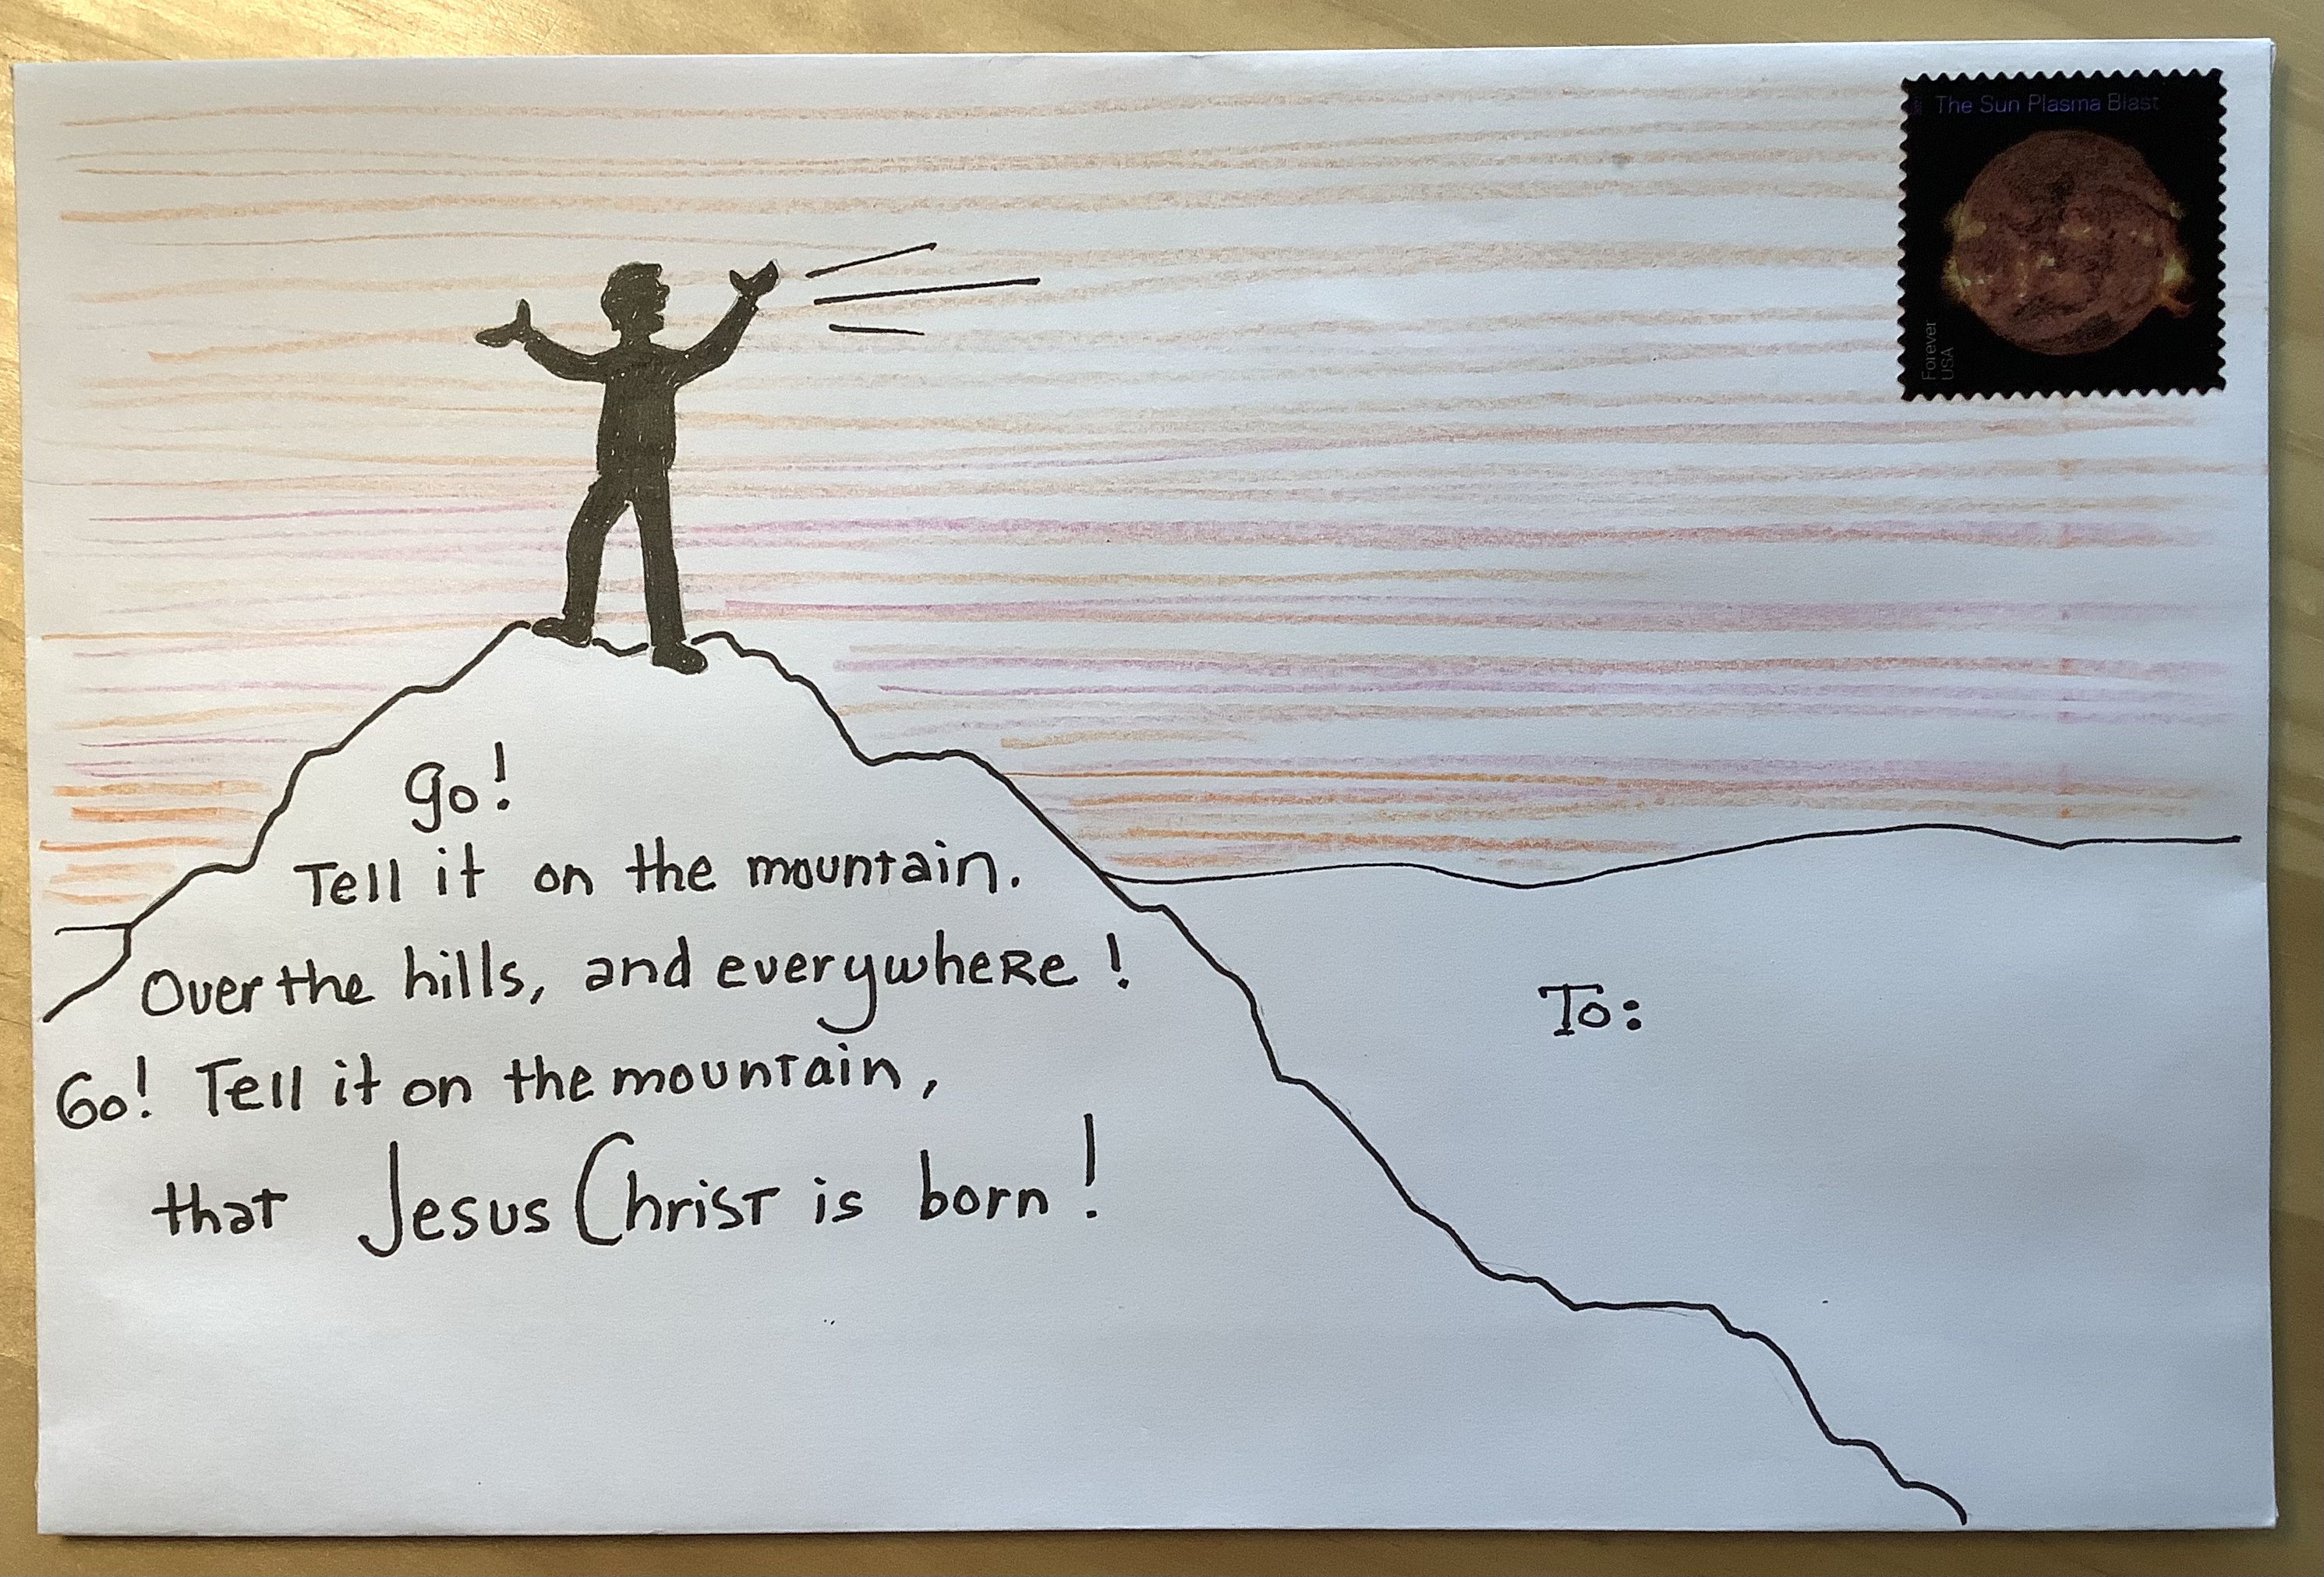 The Sun Plasma Blast
Forever
USA
go!
Tell it on the mountain.
Over the hills, and everywhere!
Go! Tell it on the mountain,
that Jesus Christ is born!
To: